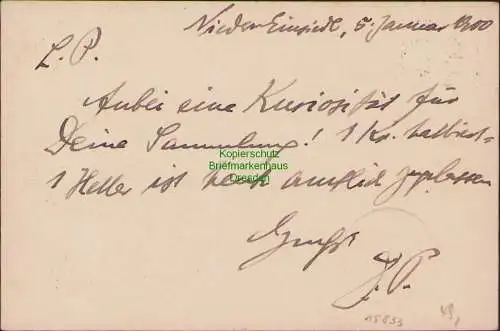 Nieder Einsiedl, 5. Januar 1900
L. P.
Anbei eine Kuriosität für
Deine Sammlung! 1 Kr. halbiert
Kopierschutz
Briefmarkenhaus
Dresden
1 Heller ist amtlich zugelassen
Gruß
J. P.
15833